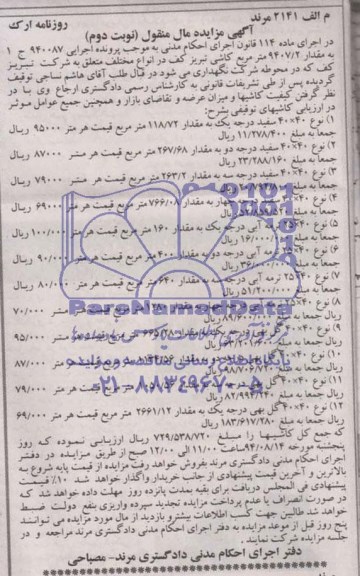 م الف ۲۱۴۱ مرند
روزنامه ارک
آگهی مزایده مال منقول (نوبت دوم)
در اجرای ماده ۱۱۴ قانون اجرای احکام مدنی به موجب پرونده اجرایی ۹۴۰۰۸۷ ج ۱
به مقدار ۹۴۰۷/۲ متر مربع کاشی تبریز کف در انواع مختلف متعلق به شرکت تبریز
کف که در محوطه شرکت نگهداری می شود در قبال طلب آقای هاشم نساجی توقیف
گردیده پس از طی تشریفات قانونی به کارشناس رسمی دادگستری ارجاع وی با در
نظر گرفتن کیفیت کاشیها و میزان عرضه و تقاضای بازار و همچنین جمیع عوامل موثر
در ارزیابی کاشیهای توقیفی بشرح:
۱) نوع ۴۰×۴۰ سفید درجه یک به مقدار ۱۱۸/۷۲ متر مربع قیمت هر متر ۹۵۰۰۰ ریال
جمعا به مبلغ ۱۱/۲۷۸/۴۰۰ ریال
۲) نوع ۴۰×۴۰ سفید درجه دو به مقدار ۲۶۷/۶۸ متر مربع قیمت هر متر ۸۷۰۰۰ ریال
جمعا به مبلغ ۲۳/۲۸۸/۱۶۰ ریال
۳) نوع ۴۰×۴۰ سفید درجه سه به مقدار ۲۶۳/۲ متر مربع قیمت هر متر ۷۹۰۰۰ ریال
جمعا به مبلغ ریال
۴) نوع ۴۰×۴۰ به مقدار ۷۶۶/۰۸ متر مربع قیمت هر متر ۶۹۰۰۰ ریال
جمعا به مبلغ ریال
۵) نوع ۴۰×۲۵ آبی درجه یک به مقدار ۱۶۰ متر مربع قیمت هر متر ۱۰۰/۰۰۰ ریال
جمعا به مبلغ ۱۶/۰۰۰/ ریال
۶) نوع ۴۰×۲۵ آبی درجه دو به مقدار ۴۰۰ متر مربع قیمت هر متر ۹۰/۰۰۰ ریال
جمعا به مبلغ ریال
۷) نوع ۴۰×۲۵ ترمه آبی درجه سه به مقدار ۶۴۰ متر مربع قیمت هر متر ۸۰/۰۰۰ ریال
جمعا به مبلغ ۵۱/۲۰۰/۰۰۰ ریال
۸) نوع ۴۰×۲۵ متر مربع قیمت هر متر ۷۰/۰۰۰
ریال جمعا به مبلغ ریال
۹) نوع ۴۰×۴۰ گل بهی درجه یک به مقدار متر مربع قیمت هر متر ۹۵/۰۰۰
ریال جمعا به مبلغ ریال
۱۰) نوع ۴۰×۴۰ گل بهی درجه دو به مقدار متر مربع قیمت هر متر ۸۷/۰۰۰
ریال جمعا به مبلغ ریال
۱۱) نوع ۴۰×۴۰ گل بهی متر مربع قیمت هر متر ۷۹/۰۰۰
ریال جمعا به مبلغ ۸۲/۹۹۴/۲۴۰ ریال
۱۲) نوع ۴۰×۴۰ گل بهی به مقدار ۲۶۶۱/۱۲ متر مربع قیمت هر متر ۶۹/۰۰۰
ریال جمعا به مبلغ ۱۸۳/۶۱۷/۲۸۰ ریال
که جمع کل کاشیها را مبلغ ۷۲۹/۵۳۸/۷۲۰ ریال ارزیابی نموده که روز
پنجشنبه مورخه ۹۴/۰۸/۱۴ ساعت ۱۱/۰۰ الی ۱۲/۰۰ صبح از طریق مزایده در دفتر
اجرای احکام مدنی دادگستری مرند بفروش خواهد رفت مزایده از قیمت پایه شروع به
بالاترین و آخرین قیمت پیشنهادی از جانب خریدار واگذار خواهد شد ۱۰٪ قیمت
پیشنهادی فی المجلس دریافت برای بقیه بمدت پانزده روز مهلت داده خواهد شد که
در صورت انصراف یا عدم پرداخت مزایده تجدید سپرده واریزی بنفع دولت ضبط
خواهد شد طالبین جهت کسب اطلاعات بیشتر و بازدید از مال مورد مزایده می توانند
پنج روز قبل از موعد مزایده به دفتر اجرای احکام مدنی دادگستری مرند مراجعه و در
جلسه مزایده شرکت نمایند.
دفتر اجرای احکام مدنی دادگستری مرند- مصباحی
ParsNamadData
پایگاه اطلاع رسانی مناقصه و مزایده
۰۲۱-۸۸۳۴۹۶۷۰-۵